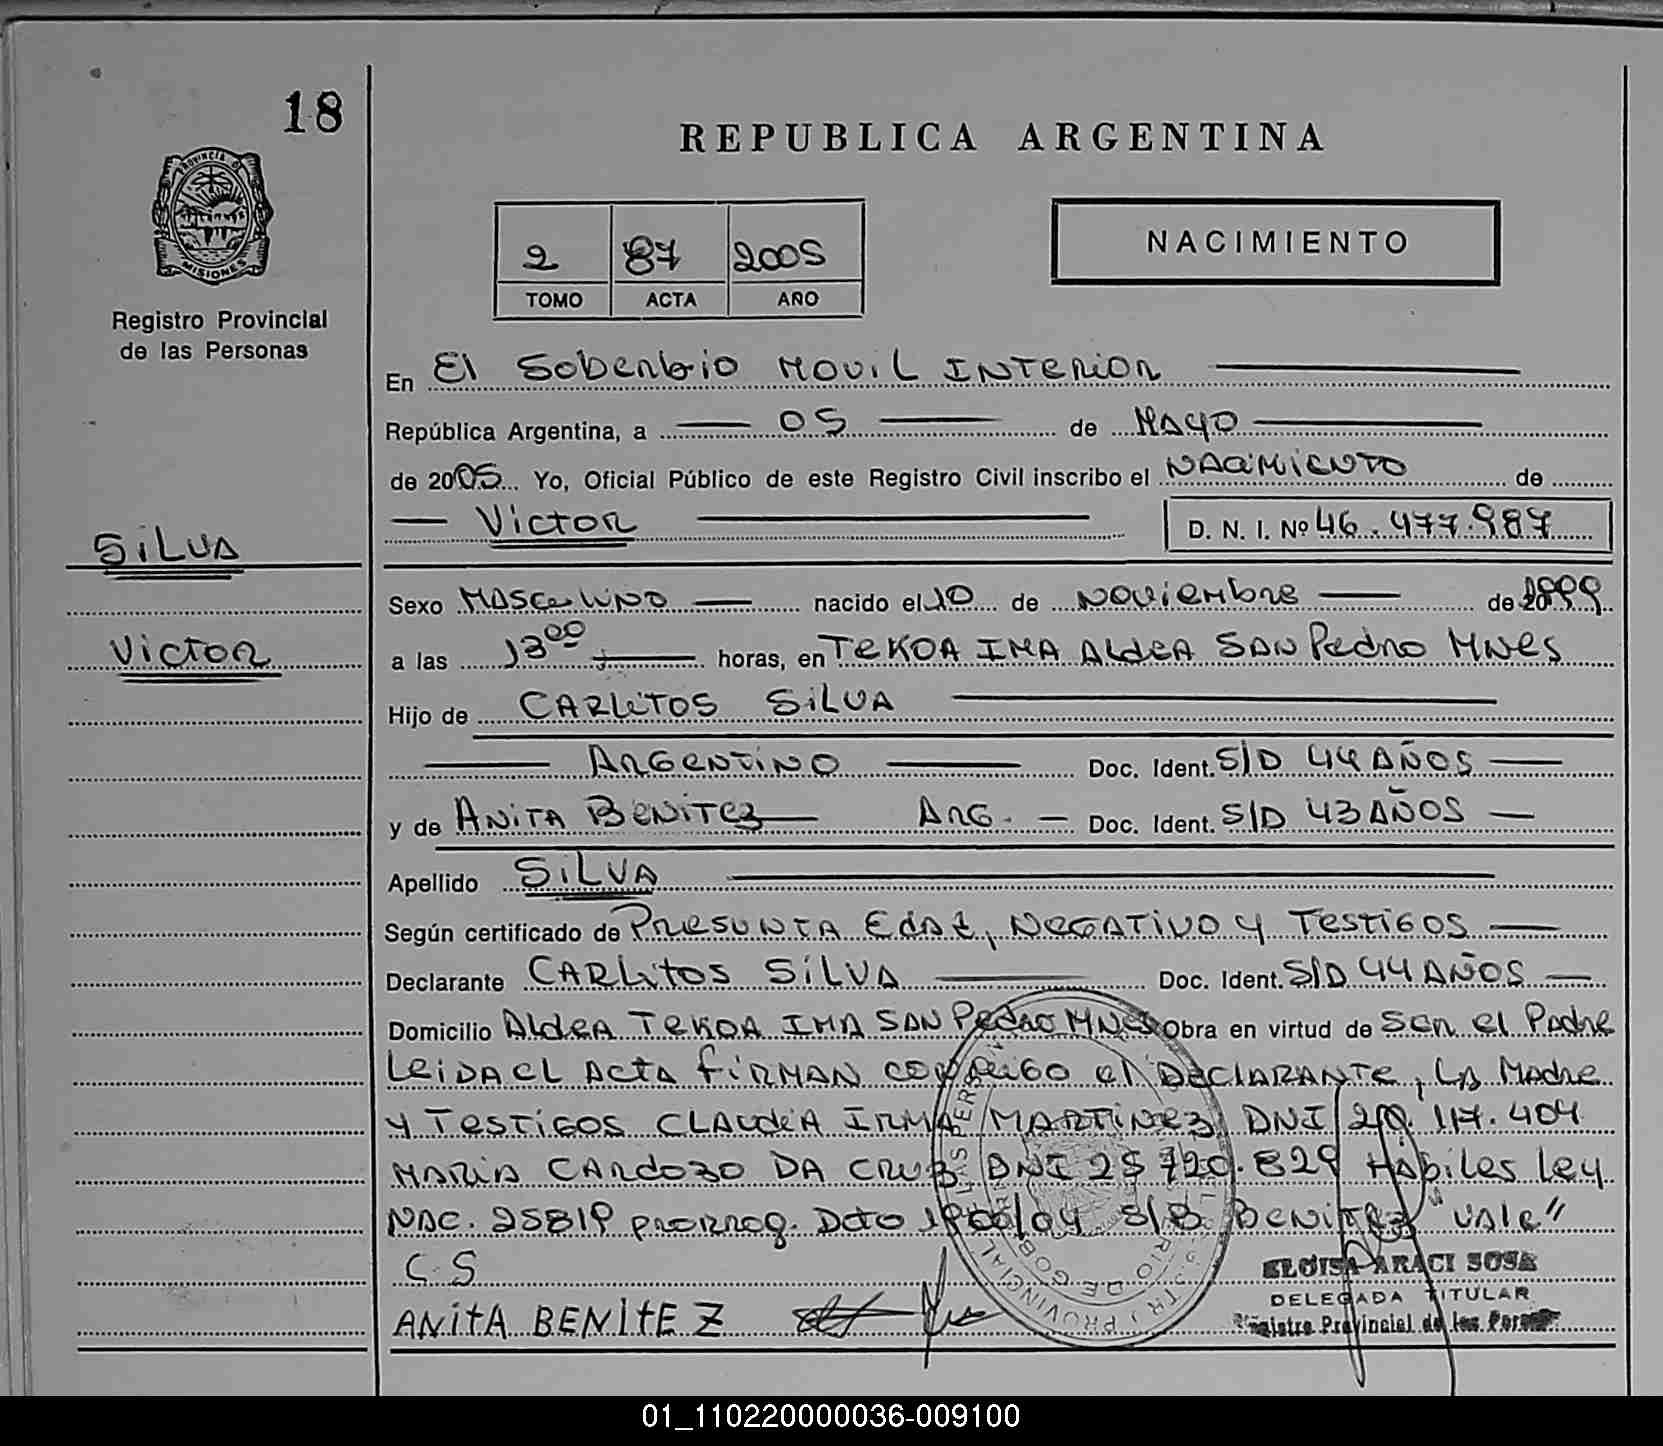 18
REPUBLICA ARGENTINA
PROVINCIA DE
MISIONES
2 87 2005
TOMO ACTA AÑO
NACIMIENTO
Registro Provincial
de las Personas
En El Soberbio Movil Interior
República Argentina, a 05 de Mayo
de 2005 Yo, Oficial Público de este Registro Civil inscribo el Nacimiento de
Victor D. N. I. Nº 46.477.987
Silva
Sexo Masculino nacido el 10 de Noviembre de 1999
Victor
a las 13 00 horas, en Tekoa Ima Aldea San Pedro Mnes
Hijo de Carlitos Silva
Argentino Doc. Ident. S/D 44 Años
y de Anita Benitez Arg. Doc. Ident. S/D 43 Años
Apellido Silva
Según certificado de Presunta Edad, Negativo y Testigos
Declarante Carlitos Silva Doc. Ident. S/D 44 Años
Domicilio Aldea Tekoa Ima San Pedro Mnes Obra en virtud de Ser el Padre
Leida el Acta firman conmigo el Declarante, La Madre
y Testigos Claudia Irma Martinez DNI 20.117.404
Maria Cardozo Da Cruz DNI 25 720.829 Habiles Ley
Nac. 25819 prorrog. Dcto S/B Benitez "Vale"
C S
ELOISA ARACI SOSA
DELEGADA TITULAR
Registro Provincial de las Personas
ANITA BENITEZ
01_110220000036-009100